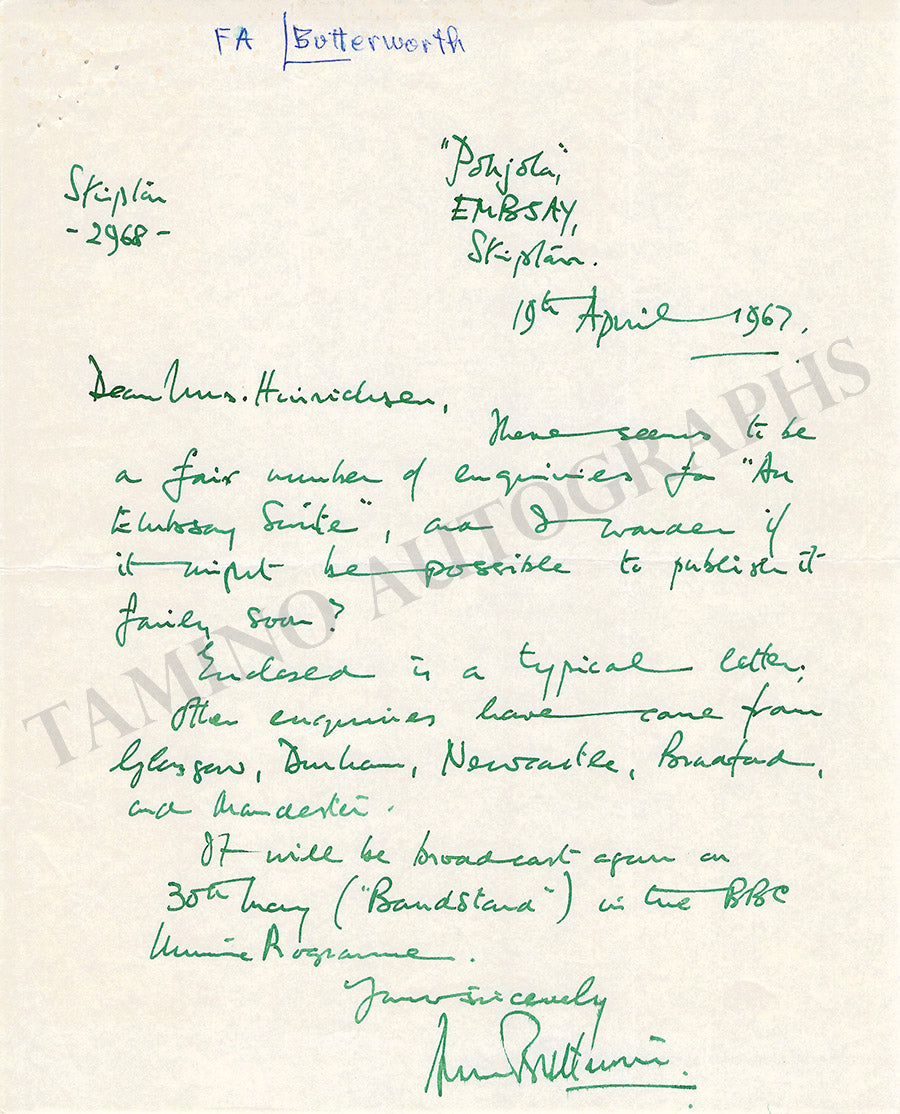 FA Butterworth
"Pohjola",
Skipton
EMBSAY,
- 2968 -
Skipton.
19th April 1967.
Dear Mrs. Hinrichsen,
There seems to be
a fair number of enquiries for "An
Embsay Suite", and I wonder if
it might be possible to publish it
fairly soon?
Enclosed is a typical letter.
Other enquiries have come from
Glasgow, Durham, Newcastle, Bradford,
and Manchester.
It will be broadcast again on
30th May ("Bandstand") in the BBC
Music Programme.
Yours sincerely
Butterworth.
TAMINO AUTOGRAPHS